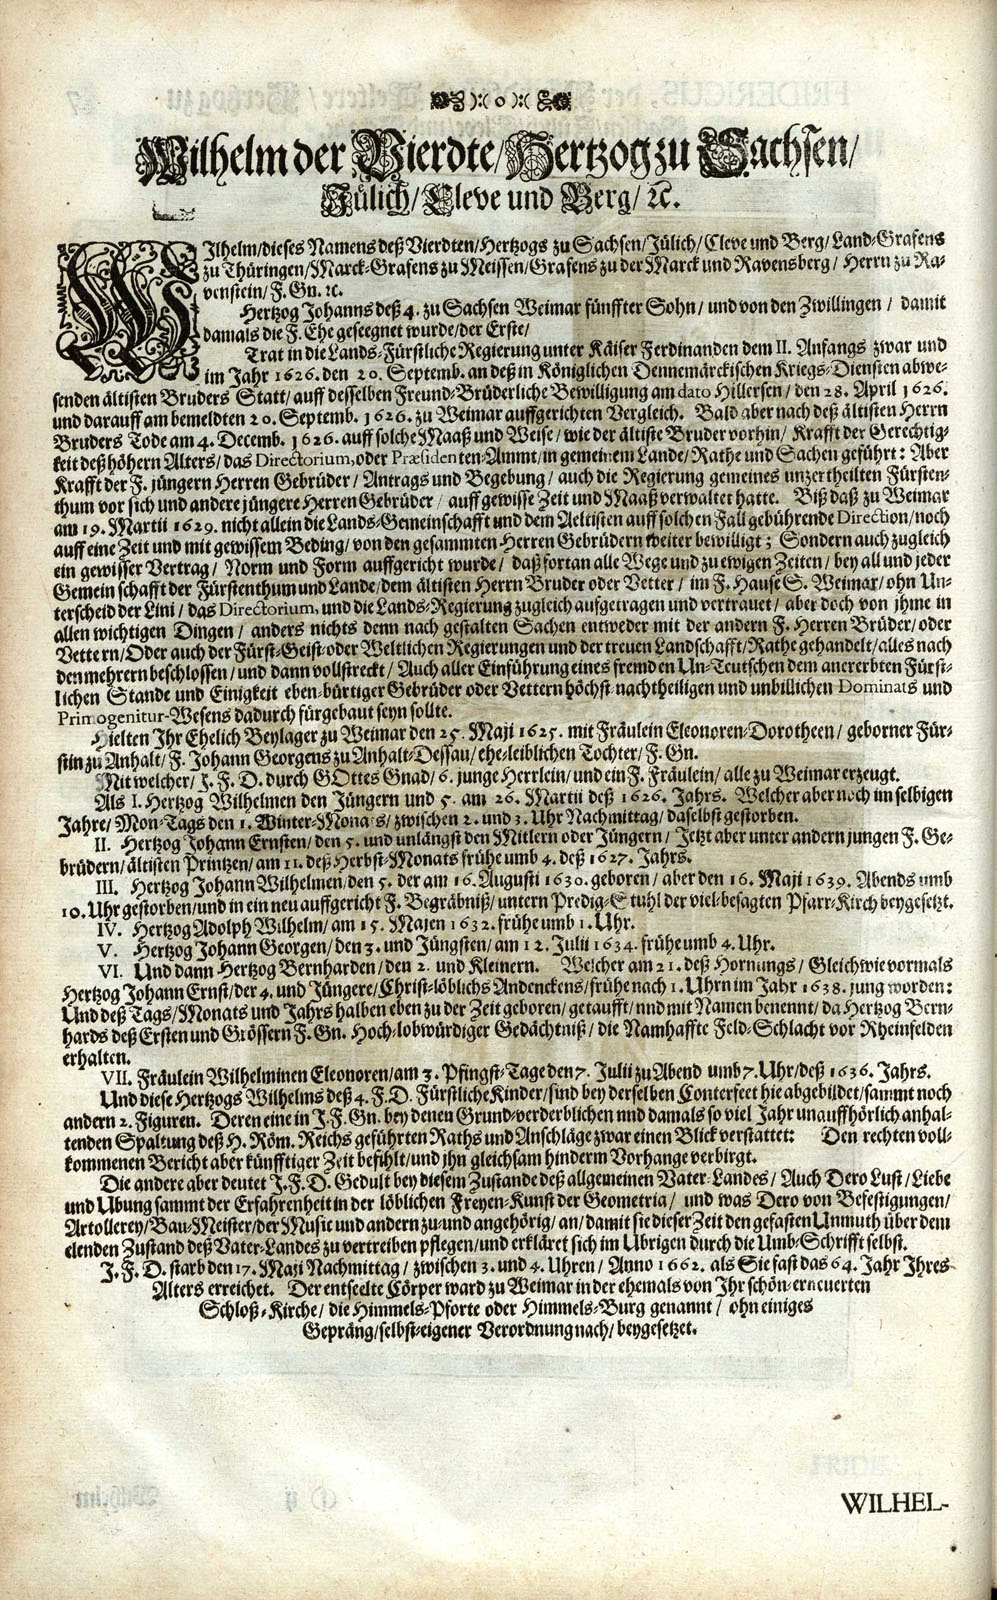 ):( o ):(
Wilhelm der Vierdte/ Hertzog zu Sachsen/
Jülich/ Cleve und Berg/ ꝛc.
WIlhelm/ dieses Namens deß Vierdten/ Hertzogs zu Sachsen/ Jülich/ Cleve und Berg/ Land-Grafens
zu Thüringen/ Marck-Grafens zu Meissen/ Grafens zu der Marck und Ravensberg/ Herrn zu Ra-
venstein/ F. Gn. ꝛc.
Hertzog Johanns deß 4. zu Sachsen Weimar fünffter Sohn/ und von den Zwillingen/ damit
damals die F. Ehe gesegnet wurde/ der Erste/
Trat in die Lands-Fürstliche Regierung unter Käiser Ferdinanden dem II. Anfangs zwar und
im Jahr 1626. den 20. Septemb. an deß in Königlichen Dennemärckischen Kriegs-Diensten abwe-
senden ältisten Bruders Statt/ auff desselben Freund-Brüderliche Bewilligung am dato Hillersen/ den 28. April 1626.
und darauff am bemeldten 20. Septemb. 1626. zu Weimar auffgerichten Vergleich. Bald aber nach deß ältisten Herrn
Bruders Tode am 4. Decemb. 1626. auff solche Maaß und Weise/ wie der ältiste Bruder vorhin/ Krafft der Gerechtig-
keit deß höhern Alters/ das Directorium, oder Præsidenten-Ammt/ in gemeinem Lande/ Rathe und Sachen geführt: Aber
Krafft der F. jüngern Herren Gebrüder/ Antrags und Begebung/ auch die Regierung gemeines unzertheilten Fürsten-
thum vor sich und andere jüngere Herren Gebrüder/ auff gewisse Zeit und Maaß verwaltet hatte. Biß daß zu Weimar
am 19. Martii 1629. nicht allein die Lands-Gemeinschafft und dem Aeltisten auff solchen Fall gebührende Direction/ noch
auff eine Zeit und mit gewissem Beding/ von den gesammten Herren Gebrüdern weiter bewilligt; Sondern auch zugleich
ein gewisser Vertrag/ Norm und Form auffgericht wurde/ daß fortan alle Wege und zu ewigen Zeiten/ bey all und jeder
Gemeinschafft der Fürstenthum und Lande/ dem ältisten Herrn Bruder oder Vetter/ im F. Hause S. Weimar/ ohn Un-
terscheid der Lini/ das Directorium, und die Lands-Regierung zugleich aufgetragen und vertrauet/ aber doch von jhme in
allen wichtigen Dingen/ anders nichts denn nach gestalten Sachen entweder mit der andern F. Herren Brüder/ oder
Vettern/ Oder auch der Fürst-Geist- oder Weltlichen Regierungen und der treuen Landschafft/ Rathe gehandelt/ alles nach
den mehrern beschlossen/ und dann vollstreckt/ Auch aller Einführung eines fremden Un-Teutschen dem anererbten Fürst-
lichen Stande und Einigkeit eben-bürtiger Gebrüder oder Vettern höchst-nachtheiligen und unbillichen Dominats und
Primogenitur-Wesens dadurch fürgebaut seyn sollte.
Hielten Ihr Ehelich Beylager zu Weimar den 25. Maji 1625. mit Fräulein Eleonoren-Dorotheen/ geborner Für-
stin zu Anhalt/ F. Johann Georgens zu Anhalt-Dessau/ ehe-leiblichen Tochter/ F. Gn.
Mit welcher/ J. F. D. durch GOttes Gnad/ 6. junge Herrlein/ und ein F. Fräulein/ alle zu Weimar erzeugt.
Als I. Hertzog Wilhelmen den Jüngern und 5. am 26. Martii deß 1626. Jahrs. Welcher aber noch im selbigen
Jahre/ Mon-Tags den 1. Winter-Monats/ zwischen 2. und 3. Uhr Nachmittag/ daselbst gestorben.
II. Hertzog Johann Ernsten/ den 5. und unlängst den Mitlern oder Jüngern/ Jetzt aber unter andern jungen F. Ge-
brüdern/ ältisten Printzen/ am 11. deß Herbst-Monats frühe umb 4. deß 1627. Jahrs.
III. Hertzog Johann Wilhelmen/ den 5. der am 16. Augusti 1630. geboren/ aber den 16. Maji 1639. Abends umb
10. Uhr gestorben/ und in ein neu auffgericht F. Begräbniß/ untern Predig-Stuhl der viel-besagten Pfarr-Kirch beygesetzt.
IV. Hertzog Adolph Wilhelm/ am 15. Majen 1632. frühe umb 1. Uhr.
V. Hertzog Johann Georgen/ den 3. und Jüngsten/ am 12. Julii 1634. frühe umb 4. Uhr.
VI. Und dann Hertzog Bernharden/ den 2. und Kleinern. Welcher am 21. deß Hornungs/ Gleich wie vormals
Hertzog Johann Ernst/ der 4. und Jüngere/ Christ-löblichs Andenckens/ frühe nach 1. Uhrn im Jahr 1638. jung worden:
Und deß Tags/ Monats und Jahrs halben eben zu der Zeit geboren/ getaufft/ nnd mit Namen benennt/ da Hertzog Bern-
hards deß Ersten und Grössern F. Gn. Hoch-lobwürdiger Gedächtniß/ die Namhaffte Feld-Schlacht vor Rheinfelden
erhalten.
VII. Fräulein Wilhelminen Eleonoren/ am 3. Pfingst-Tage den 7. Julii zu Abend umb 7. Uhr/ deß 1636. Jahrs.
Und diese Hertzogs Wilhelms deß 4. F. D. Fürstliche Kinder/ sind bey derselben Conterfect hie abgebildet/ sammt noch
andern 2. Figuren. Deren eine in J. F. Gn. bey denen Grund-verderblichen nnd damals so viel Jahr unauffhörlich anhal-
tenden Spaltung deß H. Röm. Reichs geführten Raths und Anschläge zwar einen Blick verstattet: Den rechten voll-
kommenen Bericht aber künfftiger Zeit befihlt/ und jhn gleichsam hinderm Vorhange verbirgt.
Die andere aber deutet J. F. D. Gedult bey diesem Zustande deß allgemeinen Vater-Landes/ Auch Dero Lust/ Liebe
und Ubung sammt der Erfahrenheit in der löblichen Freyen-Kunst der Geometria/ und was Dero von Befestigungen/
Artollerey/ Bau-Meister/ der Music und andern zu- und angehörig/ an/ damit sie dieser Zeit den gefasten Unmuth über dem
elenden Zustand deß Vater-Landes zu vertreiben pflegen/ und erkläret sich im Ubrigen durch die Umb-Schrifft selbst.
J. F. D. starb den 17. Maji Nachmittag/ zwischen 3. und 4. Uhren/ Anno 1662. als Sie fast das 64. Jahr Ihres
Alters erreichet. Der entseelte Cörper ward zu Weimar in der ehemals von Ihr schön-erneuerten
Schloß-Kirche/ die Himmels-Pforte oder Himmels-Burg genannt/ ohn einiges
Gepräng/ selbst-eigener Verordnung nach/ beygesetzet.
WILHEL-